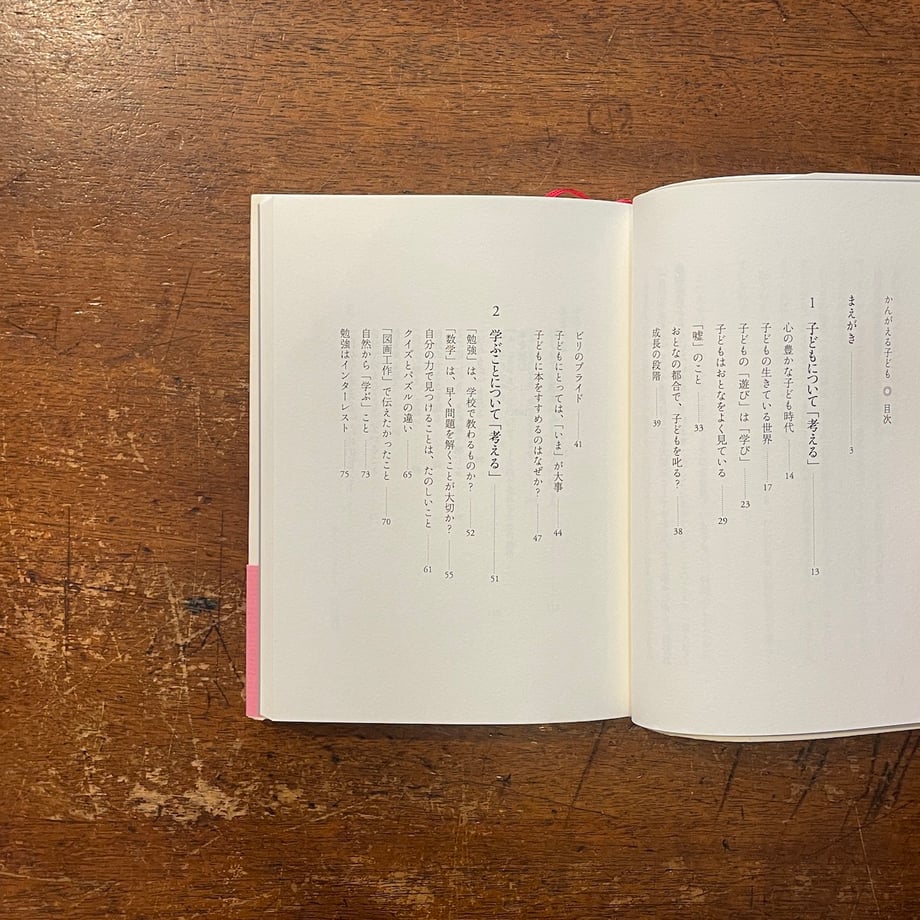 かんがえる子ども ◎ 目次
まえがき 3
1 子どもについて「考える」 13
心の豊かな子ども時代 14
子どもの生きている世界 17
子どもの「遊び」は「学び」 23
子どもはおとなをよく見ている 29
「嘘」のこと 33
おとなの都合で、子どもを叱る? 38
成長の段階 39
ビリのプライド 41
子どもにとっては、「いま」が大事 44
子どもに本をすすめるのはなぜか? 47
2 学ぶことについて「考える」 51
「勉強」は、学校で教わるものか? 52
「数学」は、早く問題を解くことが大切か? 55
自分の力で見つけることは、たのしいこと 61
クイズとパズルの違い 65
「図画工作」で伝えたかったこと 70
自然から「学ぶ」こと 73
勉強はインターレスト 75